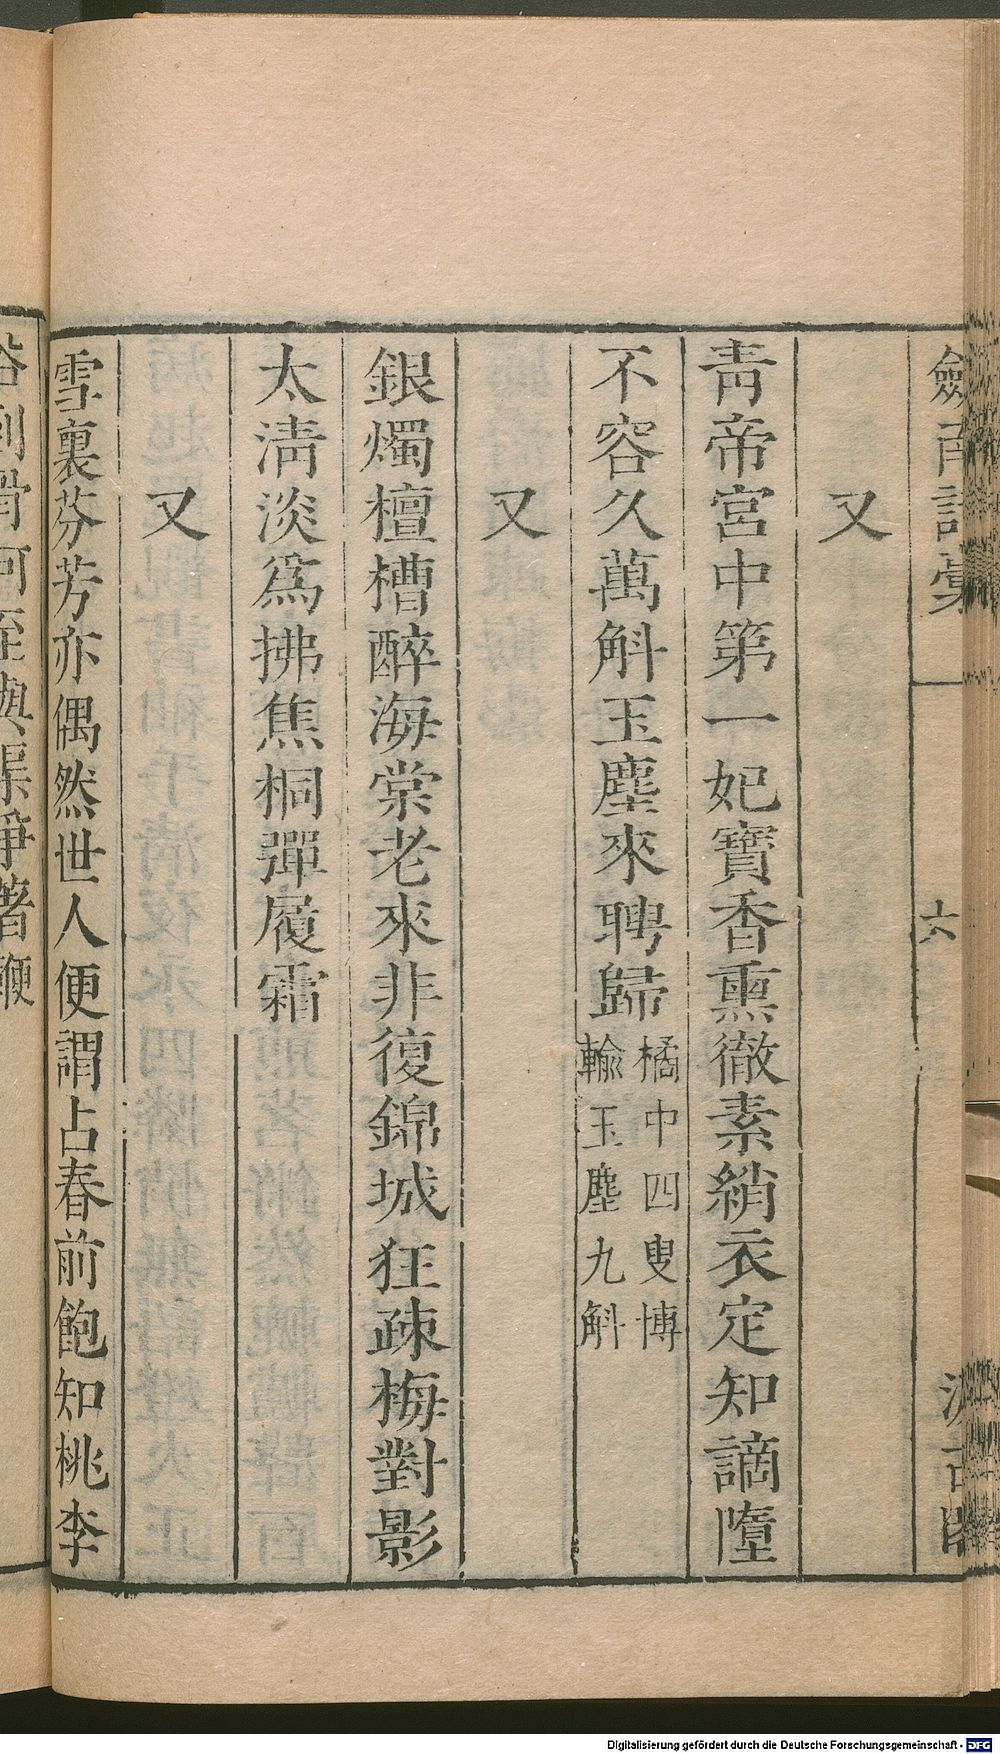 劒南詩稾
六
汲古閣
又
靑帝宮中第一妃寶香熏徹素綃衣定知謫墮
不容久萬斛玉塵來聘歸橘中四叟博
輸玉塵九斛
又
銀燭檀槽醉海棠老來非復錦城狂疎梅對影
太淸淡爲拂焦桐彈履霜
又
雪裏芬芳亦偶然世人便謂占春前飽知桃李
Digitalisierung gefördert durch die Deutsche Forschungsgemeinschaft - DFG